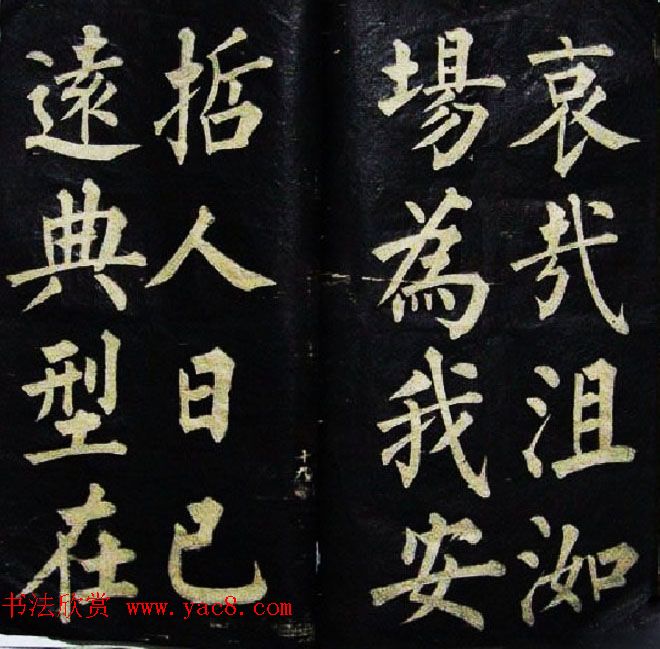 哀哉沮洳
場為我安
十九
哲人日已
遠典型在
书法欣赏 www.yac8.com